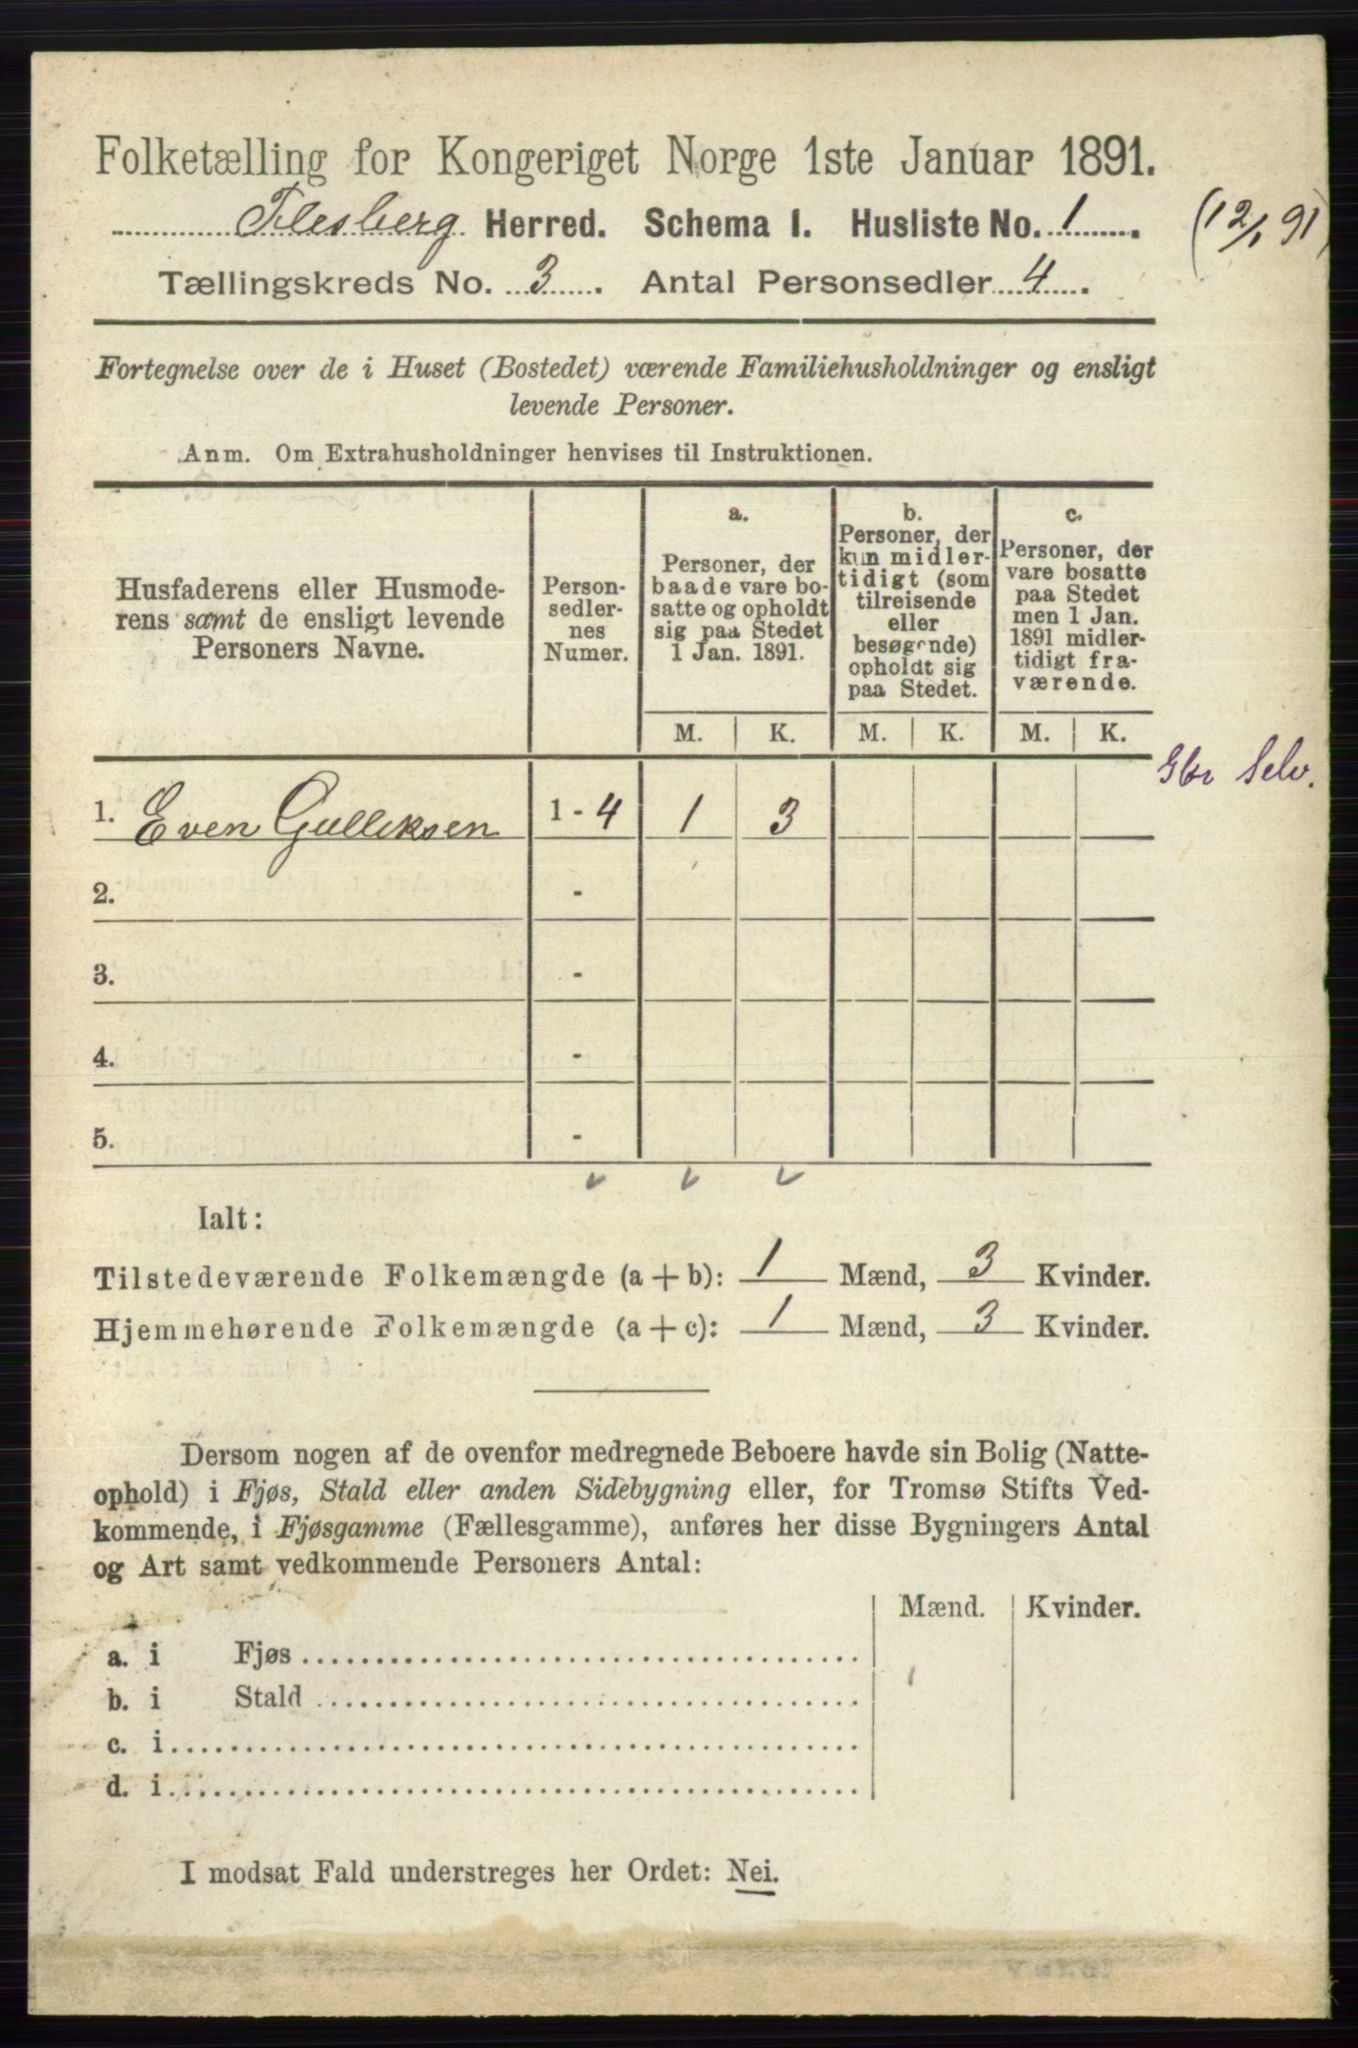 Folketælling for Kongeriget Norge 1ste Januar 1891.
Flesberg Herred. Schema I. Husliste No. 1. (12/1 91)
Tællingskreds No. 3. Antal Personsedler 4.
Fortegnelse over de i Huset (Bostedet) værende Familiehusholdninger og ensligt
levende Personer.
Anm. Om Extrahusholdninger henvises til Instruktionen.
Husfaderens eller Husmode-
rens samt de ensligt levende
Personers Navne.
Person-
sedler-
nes
Numer.
a.
Personer, der
baade vare bo-
satte og opholdt
sig paa Stedet
1 Jan. 1891.
b.
Personer, der
kun midler-
tidigt (som
tilreisende
eller
besøgende)
opholdt sig
paa Stedet.
c.
Personer, der
vare bosatte
paa Stedet
men 1 Jan.
1891 midler-
tidigt fra-
værende.
M. K. M. K. M. K.
Selv.
1. Even Gulleksen 1 - 4 1 3
2. -
3. -
4. -
5. -
Ialt:
Tilstedeværende Folkemængde (a + b): 1 Mænd, 3 Kvinder.
Hjemmehørende Folkemængde (a + c): 1 Mænd, 3 Kvinder.
Dersom nogen af de ovenfor medregnede Beboere havde sin Bolig (Natte-
ophold) i Fjøs, Stald eller anden Sidebygning eller, for Tromsø Stifts Ved-
kommende, i Fjøsgamme (Fællesgamme), anføres her disse Bygningers Antal
og Art samt vedkommende Personers Antal:
Mænd. Kvinder.
a. i Fjøs
b. i Stald
c. i
d. i
I modsat Fald understreges her Ordet: Nei.